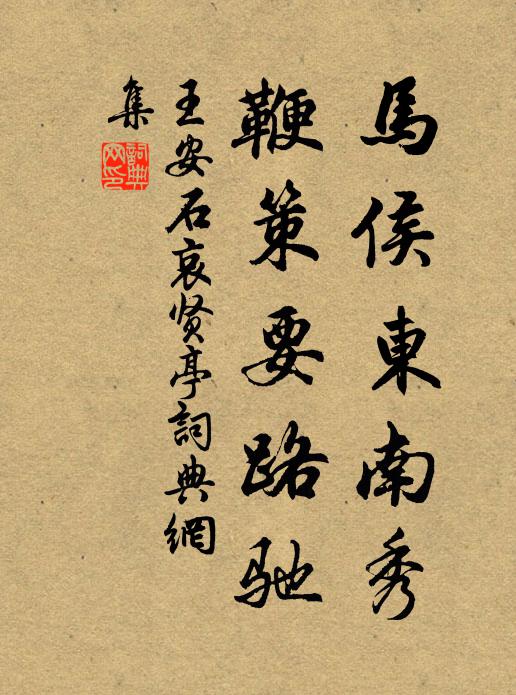 馬侯東南秀
鞭策要路驰
王安石哀贤亭詞典網
集
詞典
网印